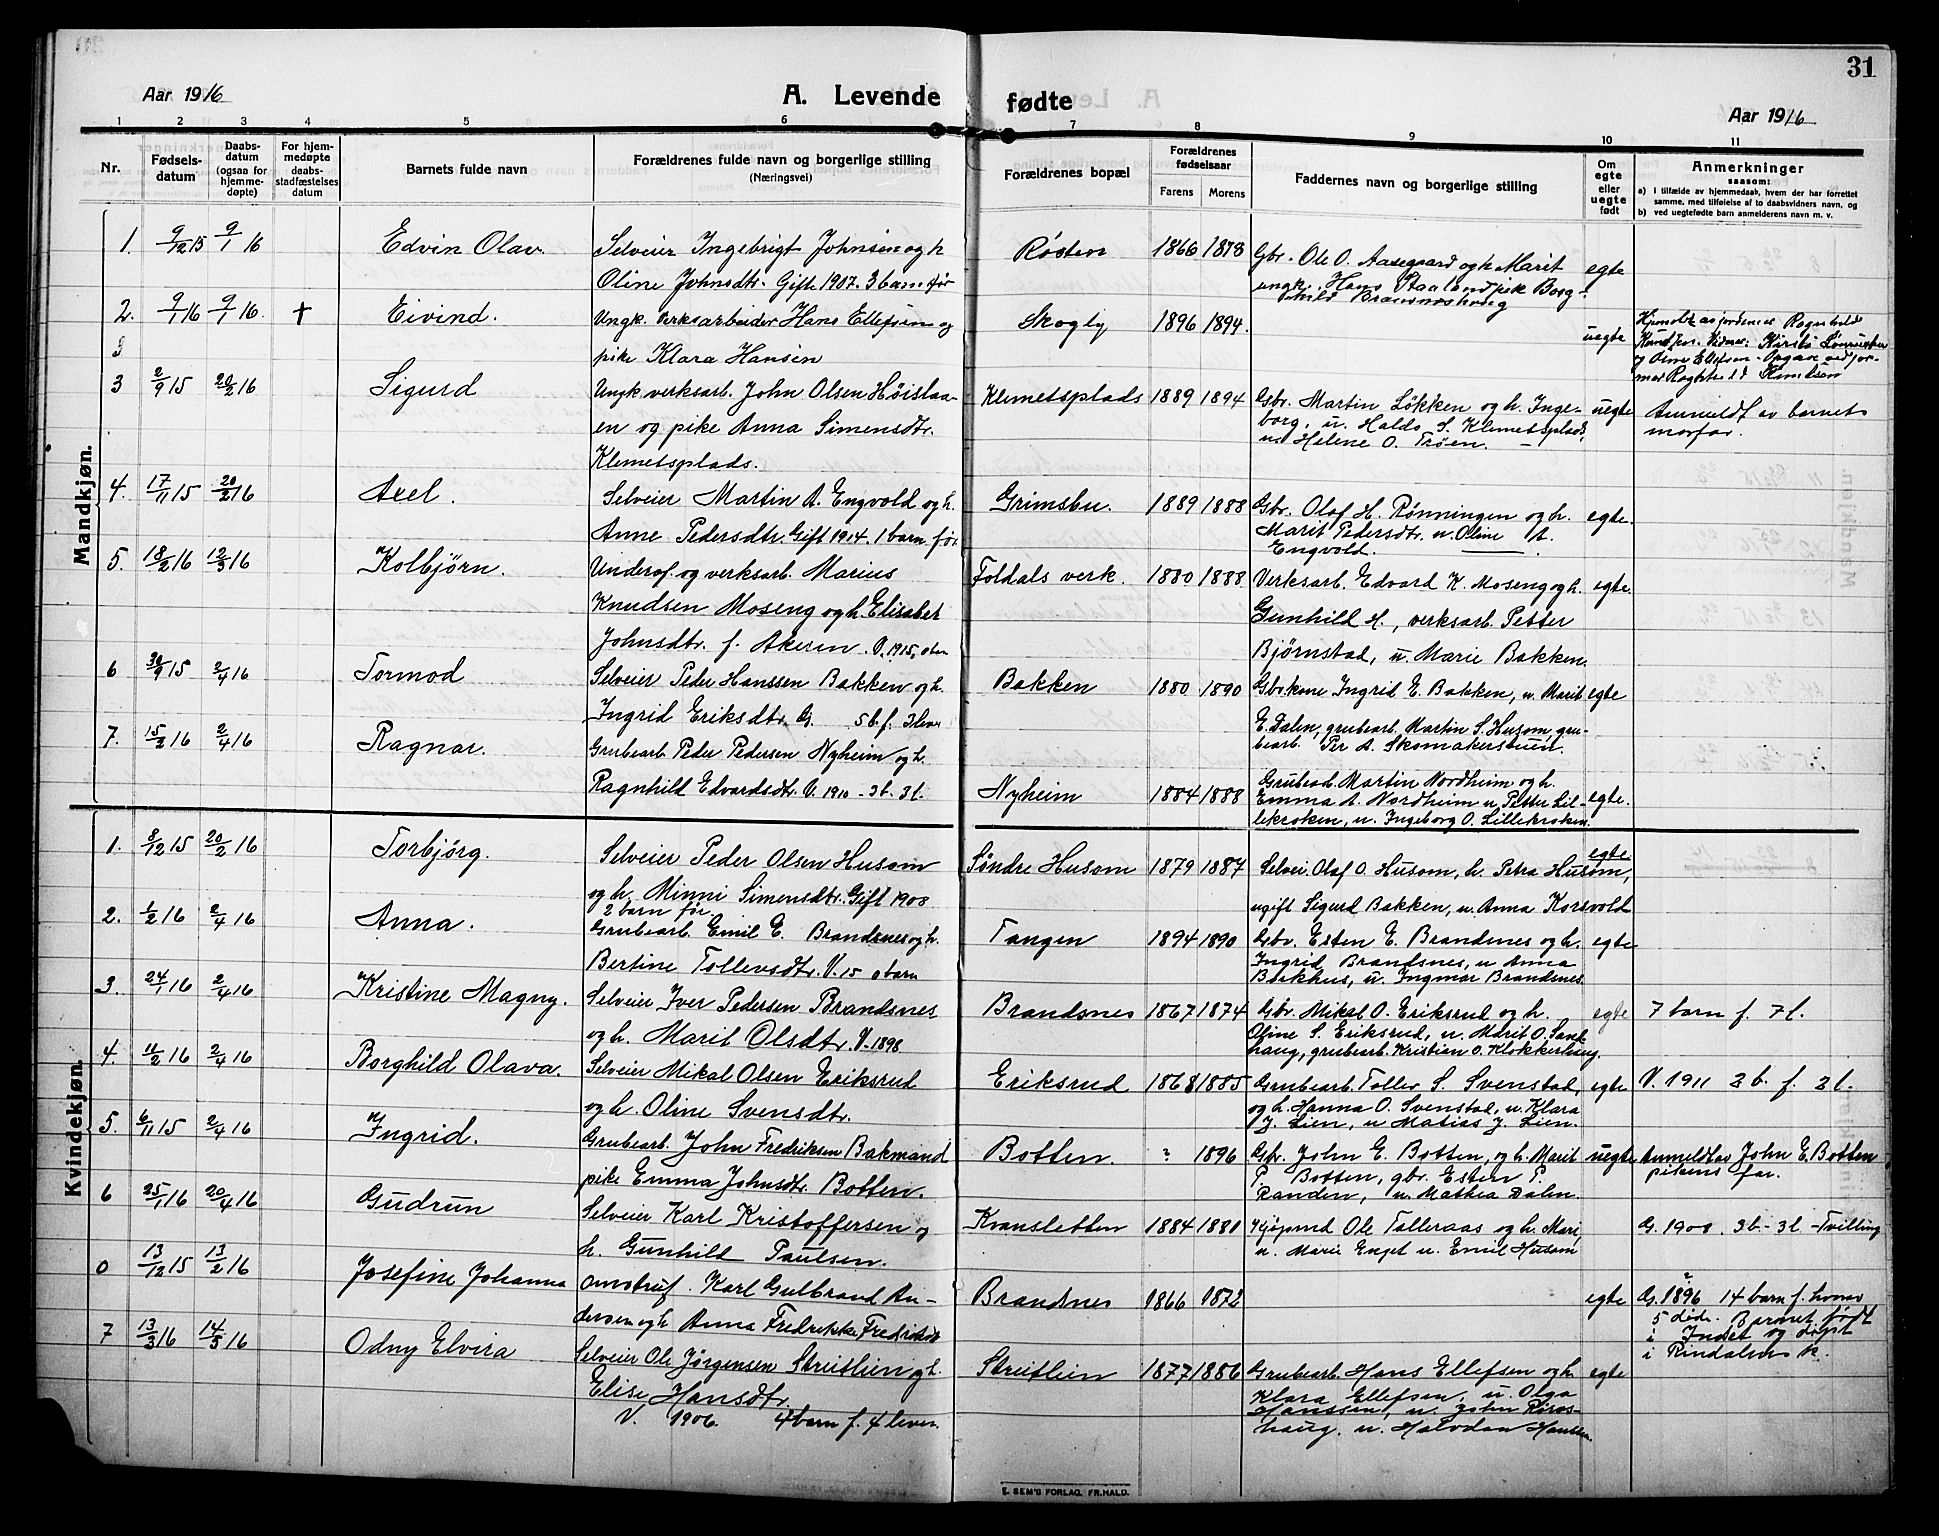 31
Aar 1916
A. Levende
fødte
Aar 1916
1 2 3 4 5 6 7 8 9 10 11
Nr.
Fødsels-
datum
Daabs-
datum
(ogsaa for
hjemme-
døpte)
For hjem-
medøpte
daabs-
stadfæstelses
datum
Barnets fulde navn
Forældrenes fulde navn og borgerlige stilling
(Næringsvei)
Forældrenes bopæl
Forældrenes
fødselsaar
Farens Morens
Faddernes navn og borgerlige stilling
Om
egte
eller
uegte
født
Anmerkninger
saasom:
a) I tilfælde av hjemmedaab, hvem der har forrettet
samme, med tilføielse af to daabsvidners navn, og
b) ved uegtefødte barn anmelderens navn m. v.
Mandkjøn.
1. 9/12 15 9/1 16 Edvin Olav. Selveier Ingebrigt Johnsen og h
Oline Johnsdtr. Gift 1907. 3 barn før
Røsten 1866 1878 Gbr. Ole O. Aasegaard og h. Marit
ungk. Hans Staaland pike Borg-
hild
egte
2. 9/1 16 9/1 16. † Eivind. Ungk. verksarbeider Hans Ellefsen og
pike Klara Hansen
Skogly 1896 1894. uegte
Hjemdøbt av jordemor Ragnhild
Knudsen. Vidner: Kirsti
og Ellefsen
3
3 2/9 15 20/2 16 Sigurd Ungk. verksarb. John Olsen Høislaa-
en og pike Anna Simensdtr.
Klemetsplads.
Klemetsplads 1889 1894 Gbr. Martin Løkken og h. Inge-
borg, u. Haldo S. Klemetsplads,
u. Helene O. Trøen.
uegte Anmeldt av barnets
morfar.
4. 17/11 15 20/2 16 Axel. Selveier Martin A. Engvold og h.
Anne Pedersdtr. Gift 1914. 1 barn før
Grimsbu. 1889 1888 Gbr. Olaf H. Rønningen og h.
Marit Pedersdtr. u. Oline A.
Engvold.
egte.
5. 18/2 16 12/3 16 Kolbjørn. Underof. og verksarb. Marius
Knudsen Moseng og h. Elisabet
Johnsdtr. f. Akeren. V. 1915, 0 barn
Foldals verk. 1880 1888 Verksarb. Edvard K. Moseng og h.
Gunhild H., verksarb. Petter
Bjørnstad, u. Marie Bakken.
egte.
6 30/9 15 2/4 16 Tormod Selveier Peder Hanssen Bakken og h.
Ingrid Eriksdtr. G. 5 b. f. 3 lever
Bakken 1880 1890 Gbr.kone Ingrid E. Bakken, u. Marit
E. Dalen, grubearb. Martin S. Husom, gru-
bearb. Per A. Skomakerstuen.
egte
7. 15/2 16 2/4 16 Ragnar. Grubearb. Peder Pedersen Nyheim og h.
Ragnhild Edvardsdtr. V. 1910 - 3 b. 3 l.
Nyheim 1884 1888 Grubearb. Martin Nordheim og h.
Emma A. Nordheim u. Petter Lil-
lekroken, u. Ingeborg O. Lillekroken.
egte.
Kvindekjøn.
1. 8/12 15 20/2 16 Torbjørg. Selveier Peder Olsen Husom
og h. Minni Simensdtr. Gift 1908
2 barn før.
Søndre Husom 1879 1887 Selvei. Olaf O. Husom, h. Petra Husom,
ugift Sigurd Bakken, u. Anna Korsvold
egte
2. 1/2 16 2/4 16 Anna. Grubearb. Emil E. Brandsnes og h.
Bertine Tollevsdtr. V. 15 0 barn
Tangen 1894 1890 Gbr. Esten E. Brandsnes og h.
Ingrid Brandsnes, u. Anna
Bakhus, u. Ingmar Brandsnes.
egte
3. 24/1 16 2/4 16 Kristine Magny. Selveier Iver Pedersen Brandsnes
og h. Marit Olsdtr. V. 1898
Brandsnes 1867 1874 Gbr. Mikal O. Eriksrud og h.
Oline S. Eriksrud, u. Marit O.
haug, grubearb. Kristian O. Klokkerhaug.
egte 7 barn f. 7 l.
4. 11/2 16 2/4 16 Borghild Olava. Selveier Mikal Olsen Eriksrud
og h. Oline Svensdtr.
Eriksrud 1868 1885 Grubearb. Tollev S. Svenstad,
og h. Hanna O. Svenstad, u. Klara
J. Lien, u. Matias J. Lien.
egte V. 1911 2 b. f. 2 l.
5. 6/11 15 2/4 16 Ingrid. Grubearb. John Fredriksen Bakmand
pike Emma Johnsdtr. Botten.
Botten. ? 1896 Gbr. John E. Botten, og h. Marit
P. Botten, gbr. Esten P.
Randen, u. Mathea Dalen.
uegte Anmeldt av John E. Botten
pikens far.
6 25/1 16 20/4 16 Gudrun Selveier Karl Kristoffersen og
h. Gunhild Paulsen.
Kvansletten 1884 1881 Kjøpmd Ole Tolleraas og h. Mari,
u. Marie Enget u. Emil Husom
G. 1908. 3 b. - 3 l. - Tvilling
0 13/12 15 13/2 16 Josefine Johanna Omstruf. Karl Gulbrand An-
dersen og h. Anna Fredrikke Fredriksdt
Brandsnes 1866 1872 egte
G. 1896 14 barn f. hvorav
5 døde. Barnet født
i Indset og døpt
i Rindalens k.
7 13/3 16 14/5 16 Odny Elvira Selveier Ole Jørgensen Streitlien og h.
Elise Hansdtr.
V. 1906. 4 barn f. 4 lever.
Streitlien 1877 1886 Grubearb. Hans Ellefsen og h.
Klara Ellefsen, u. Olga
Hanssen, u. John
haug. u. Halvdan Hanssen.
egte
E. SEM'S FORLAG, FR.HALD.